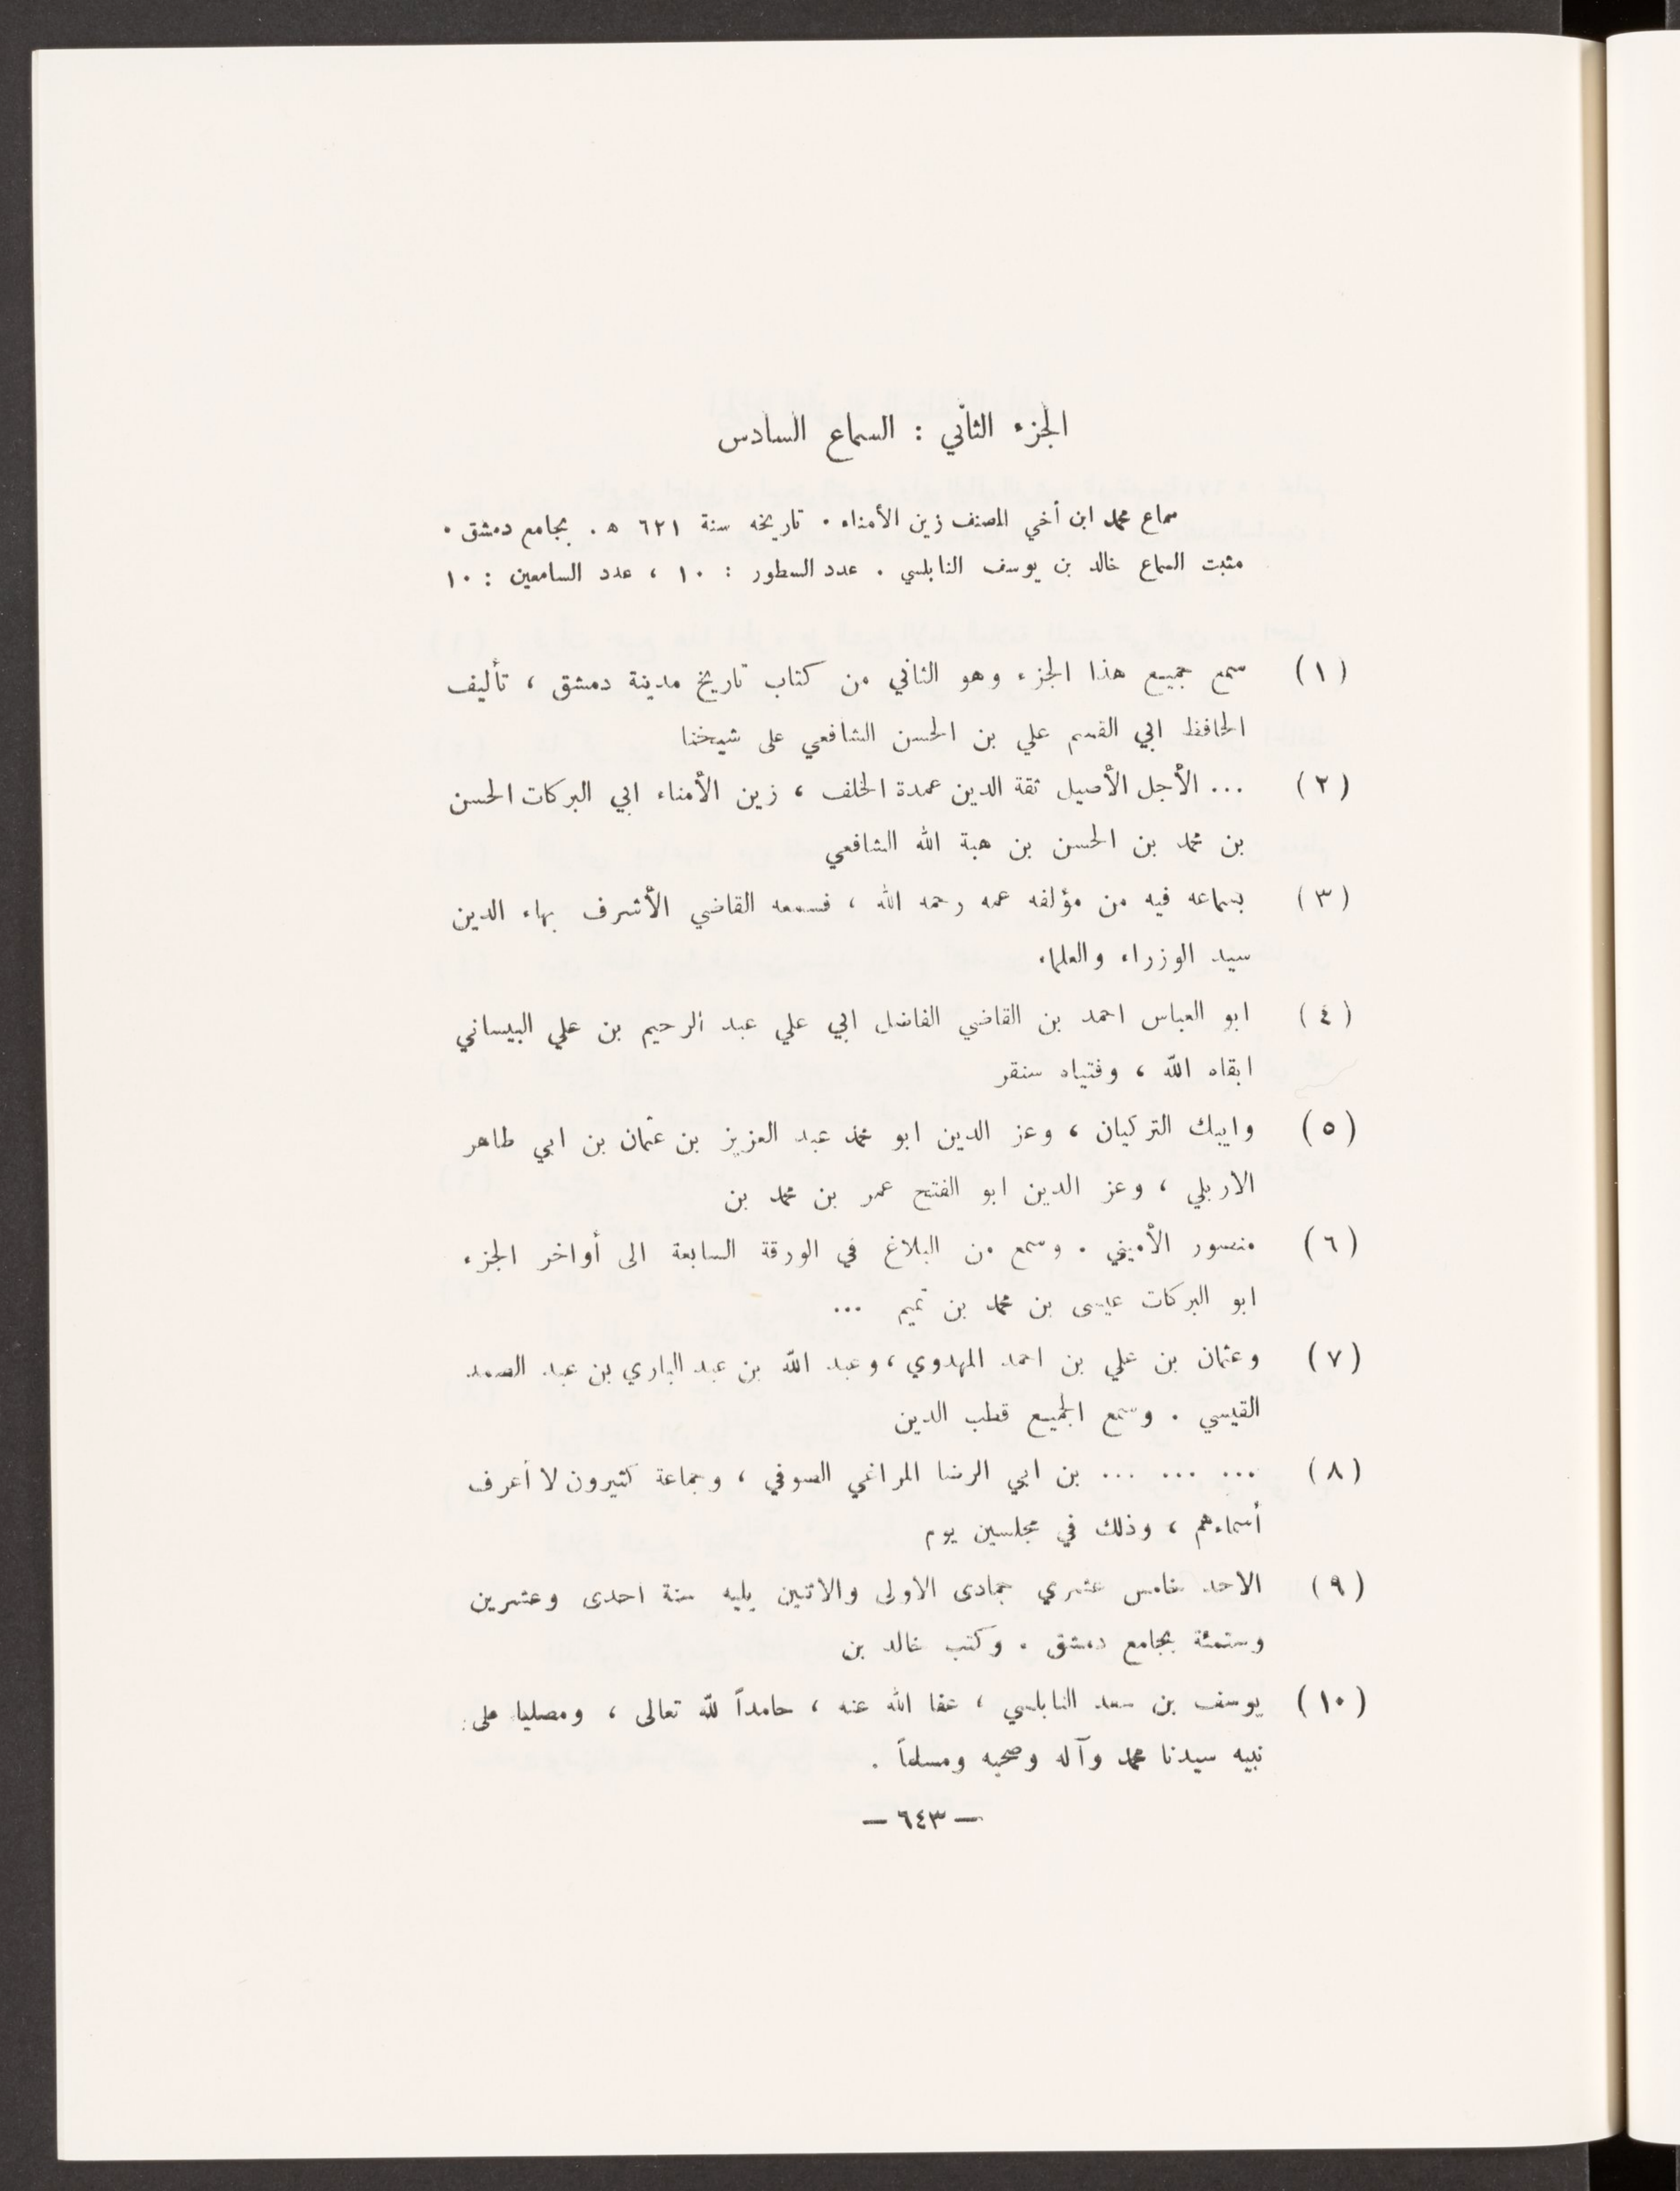 الجزء الثاني : السماع السادس
سماع محمد ابن أخي المصنف زين الأمناء . تاريخه سنة ٦٢١ ه . بجامع دمشق .
مثبت السماع خالد بن يوسف النابلسي . عدد السطور : ١٠ ، عدد السامعين : ١٠
(١) سمع جميع هذا الجزء وهو الثاني من كتاب تاريخ مدينة دمشق ، تأليف
الحافظ ابي القسم علي بن الحسن الشافعي على شيخنا
(٢) ... الأجل الأصيل ثقة الدين عمدة الخلف ، زين الأمناء ابي البركات الحسن
بن محمد بن الحسن بن هبة الله الشافعي
(٣) بسماعه فيه من مؤلفه عمه رحمه الله ، فسمعه القاضي الأشرف بهاء الدين
سيد الوزراء والعلماء
(٤) ابو العباس احمد بن القاضي الفاضل ابي علي عبد الرحيم بن علي البيساني
ابقاه الله ، وفتياه سنقر
(٥) وايبك التركيان ، وعز الدين ابو محمد عبد العزيز بن عثمان بن ابي طاهر
الاربلي ، وعز الدين ابو الفتح عمر بن محمد بن
(٦) منصور الأميني . وسمع من البلاغ في الورقة السابعة الى أواخر الجزء
ابو البركات عيسى بن محمد بن تميم ...
(٧) وعثمان بن علي بن احمد المهدوي ، وعبد الله بن عبد الباري بن عبد الصمد
القيسي . وسمع الجميع قطب الدين
(٨) ... ... ... بن ابي الرضا المراغي الصوفي ، وجماعة كثيرون لا أعرف
أسماءهم ، وذلك في مجلسين يوم
(٩) الاحد خامس عشري جمادى الاولى والاثنين يليه سنة احدى وعشرين
وستمئة بجامع دمشق . وكتب خالد بن
(١٠) يوسف بن سعد النابلسي ، عفا الله عنه ، حامداً لله تعالى ، ومصليا على
نبيه سيدنا محمد وآله وصحبه ومسلماً .
— ٦٤٣ —